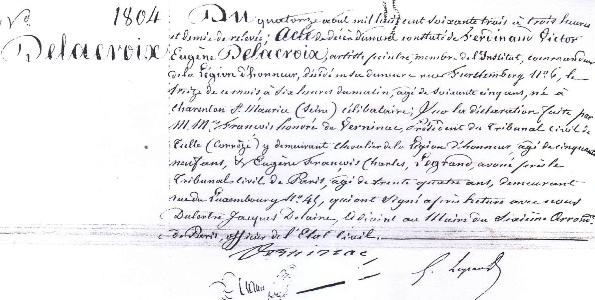 No 1804
Delacroix
Du quatorze août mil huit cent soixante trois à trois heures
et demie de relevée; Acte de décès dûment constaté de Ferdinand Victor
Eugène Delacroix, artiste peintre, membre de l'Institut, commandeur
de la Légion d'honneur, décédé en sa demeure rue Furstemberg No 6, le
treize de ce mois à six heures du matin, âgé de soixante cinq ans, né à
Charenton St Maurice (Seine) célibataire; Sur la déclaration faite par
M.M. François honoré de Verninac, Président du Tribunal civil de
Tulle (Corrèze) y demeurant chevalier de la Légion d'honneur, âgé de cinquante
neuf ans, & Eugène François Charles, Legrand, avoué près le
Tribunal civil de Paris, âgé de trente quatre ans, demeurant
rue du Luxembourg No 45, qui ont signé après lecture avec nous
Jacques Delaire, adjoint au Maire du Sixième Arrondt
de Paris, officier de l'Etat Civil.
Verninac
E. Legrand